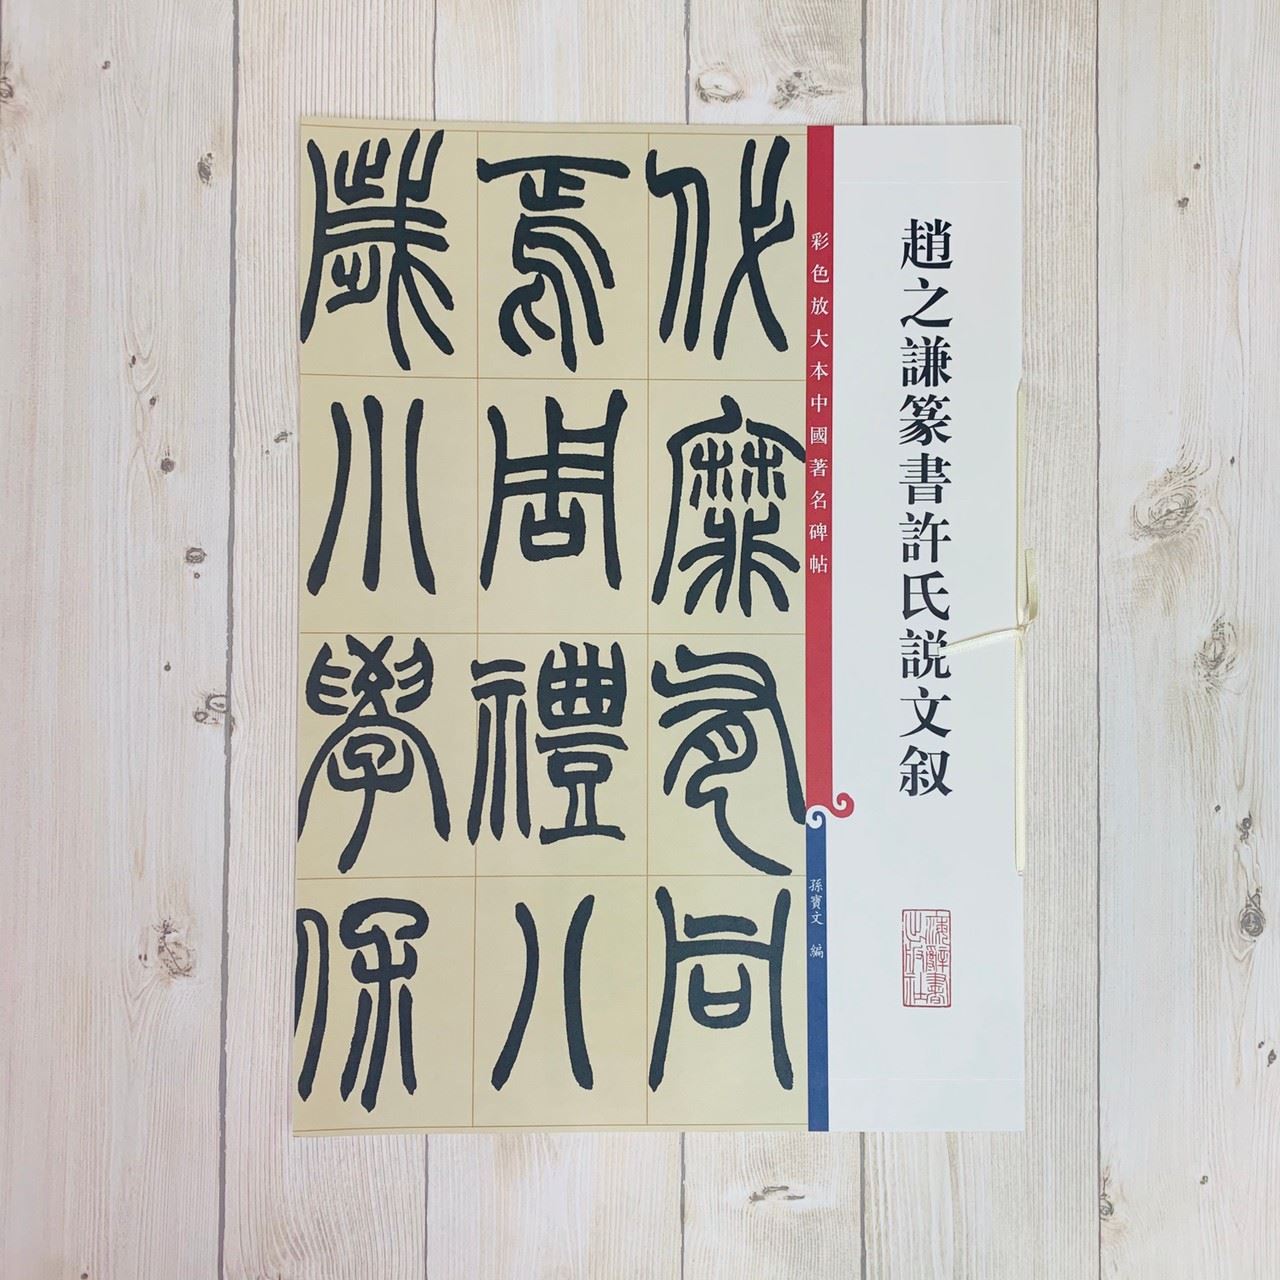 趙之謙篆書許氏説文叙
上海辭書
出版社
彩色放大本中國著名碑帖
孫寶文 編
代靡有同
焉周禮八
歲小學保